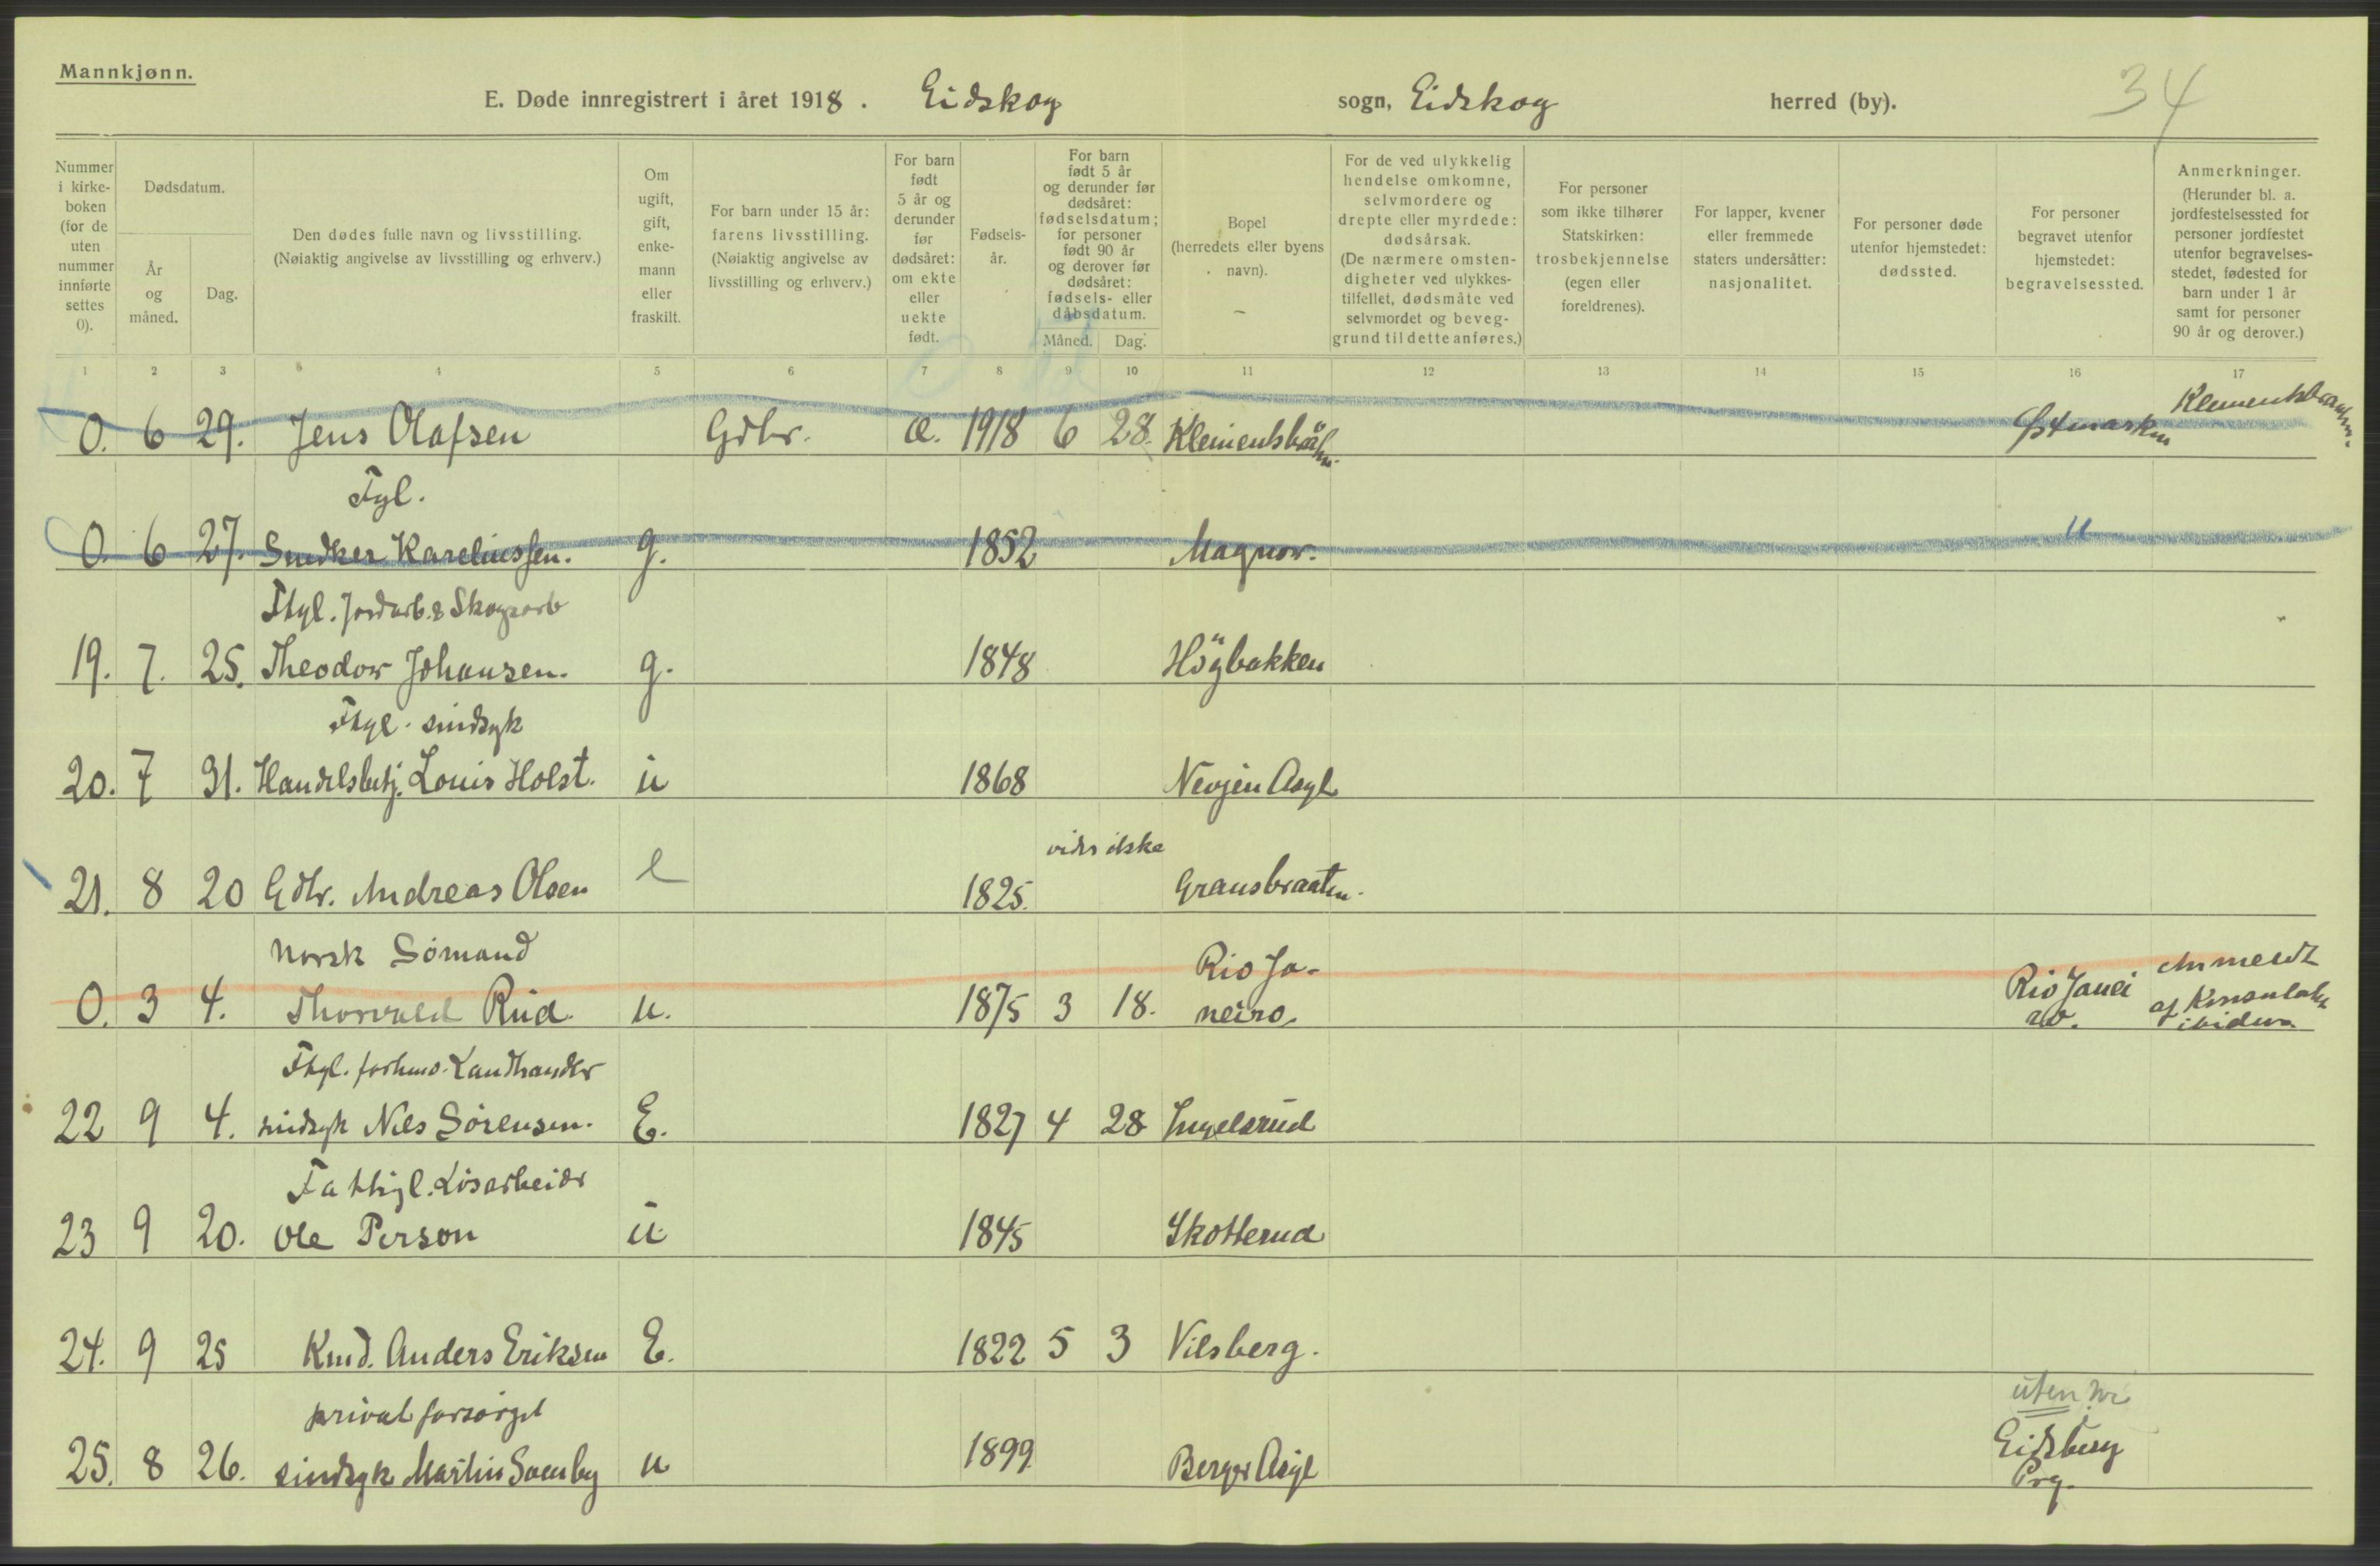 Mannkjønn.
E. Døde innregistrert i året 1918. Eidskog sogn, Eidskog herred (by). 34
Nummer i kirke-boken (for de uten nummer innførte settes 0).
Dødsdatum.
År og måned.
Dag.
Den dødes fulle navn og livsstilling. (Nøiaktig angivelse av livsstilling og erhverv.)
Om ugift, gift, enke-mann eller fraskilt.
For barn under 15 år: farens livsstilling. (Nøiaktig angivelse av livsstilling og erhverv.)
For barn født 5 år og derunder før dødsåret: om ekte eller uekte født.
Fødsels-år.
For barn født 5 år og derunder før dødsåret: fødselsdatum; for personer født 90 år og derover før dødsåret: fødsels- eller dåbsdatum.
Måned. Dag.
Bopel (herredets eller byens navn).
For de ved ulykkelig hendelse omkomne, selvmordere og drepte eller myrdede: dødsårsak. (De nærmere omsten-digheter ved ulykkes-tilfellet, dødsmåte ved selvmordet og beveg-grund til dette anføres.)
For personer som ikke tilhører Statskirken: trosbekjennelse (egen eller foreldrenes).
For lapper, kvener eller fremmede staters undersåtter: nasjonalitet.
For personer døde utenfor hjemstedet: dødssted.
For personer begravet utenfor hjemstedet: begravelsessted.
Anmerkninger. (Herunder bl. a. jordfestelsessted for personer jordfestet utenfor begravelses-stedet, fødested for barn under 1 år samt for personer 90 år og derover.)
1 2 3 4 5 6 7 8 9 10 11 12 13 14 15 16 17
0. 6 29. Jens Olafsen Gdbr. æ. 1918 6 28. Østmarken
Fgl.
0. 6 27. Snedker Kareliussen. g. 1852 Magnor. "
Fthgl. Jordarb. & Skogsarb
19. 7. 25. Theodor Johansen. g. 1848 Högbakken
Fthgl. sindsyk
20. 7 31. Handelsbetj. Louis Holst. u 1868 Asyl
vides ikke
21. 8 20 Gdbr. Andreas Olsen e 1825. Gransbraaten.
Norsk Sömand Rio Ja-
0. 3 4. Thorvald Rud. u. 1875 3 18. neiro. Rio Janei ro. Anmeldt af Konsulatet ibidem
Fthgl. forhenv. Landhandler
22 9 4. sindsyk Nils Sörensen. E. 1827 4 28 Ingelsrud
Fatthgl. Lösarbeider
23 9 20. Ole Person u. 1845 Skotterud
24. 9 25 Anders Eriksen E. 1822 5 3 Vilsberg.
privat forsörget uten nr
25. 8 26. sindsyk Martin u 1899 Berger Asyl Eidsberg Prg.